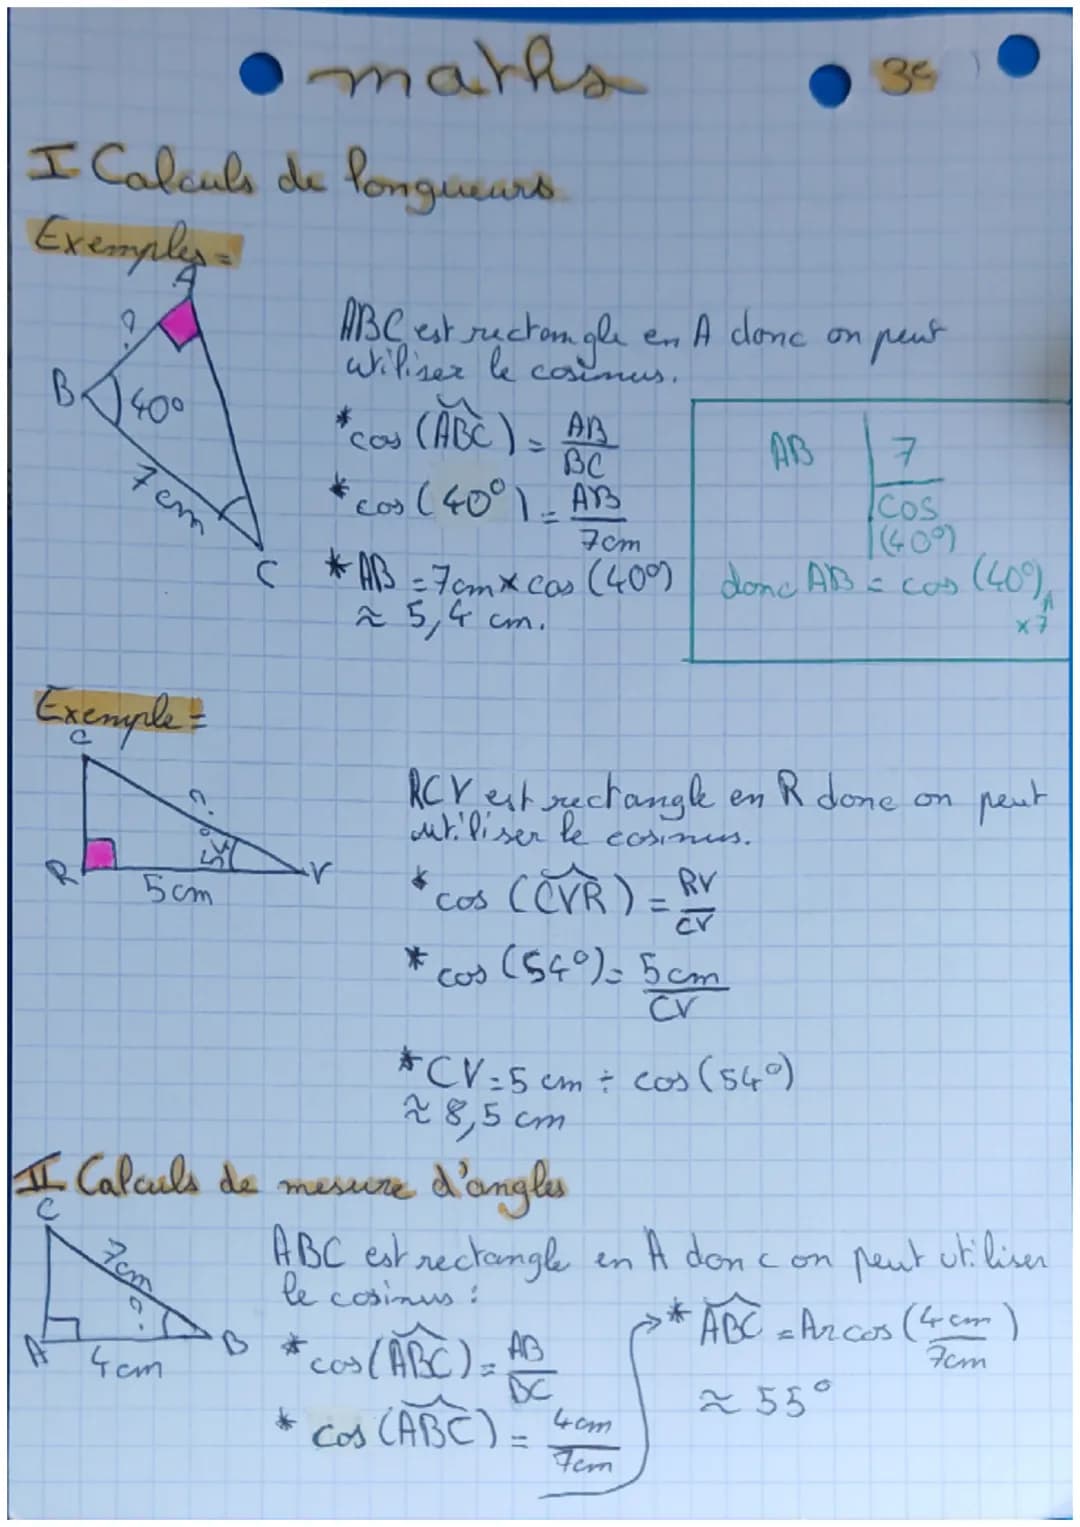 maths
3e
I Calculs de longueurs
Exemples =
A
?
B
40°
7 cm
C
ABC est rectangle en A donc on peut
utiliser le cosinus.
* cos (ABC) = AB
BC
* cos (40°) = AB
7cm
* AB = 7cm x cos (40°)
≈ 5,4 cm.
AB
7
cos
(40°)
donc AB = cos (40°)
x 7
Exemple =
C
?
54°
R
V
5 cm
RCV est rectangle en R donc on peut
utiliser le cosinus.
* cos (CVR) = RV
CV
* cos (54°) = 5cm
CV
* CV = 5 cm ÷ cos (54°)
≈ 8,5 cm
II Calculs de mesure d'angles
C
7cm
?
A
B
4 cm
ABC est rectangle en A donc on peut utiliser
le cosinus :
* cos (ABC) = AB
BC
* cos (ABC) = 4cm
7cm
* ABC = Arcos (4 cm)
7cm
≈ 55°